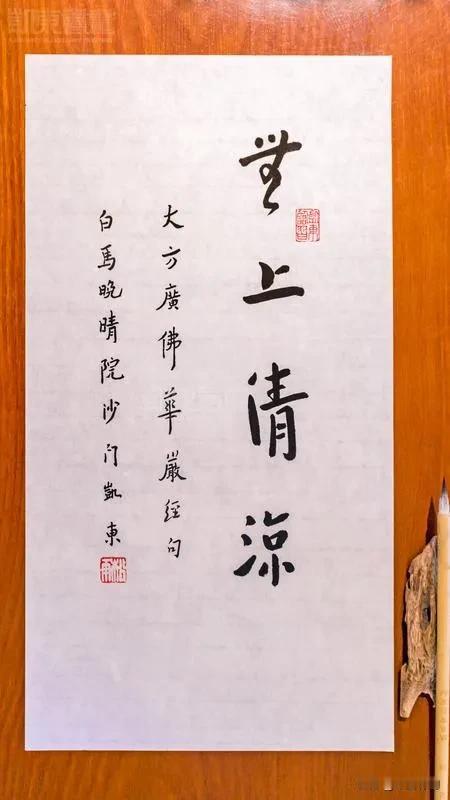 無上清涼
大方廣佛華嚴經句
白馬晚晴院沙门凱東